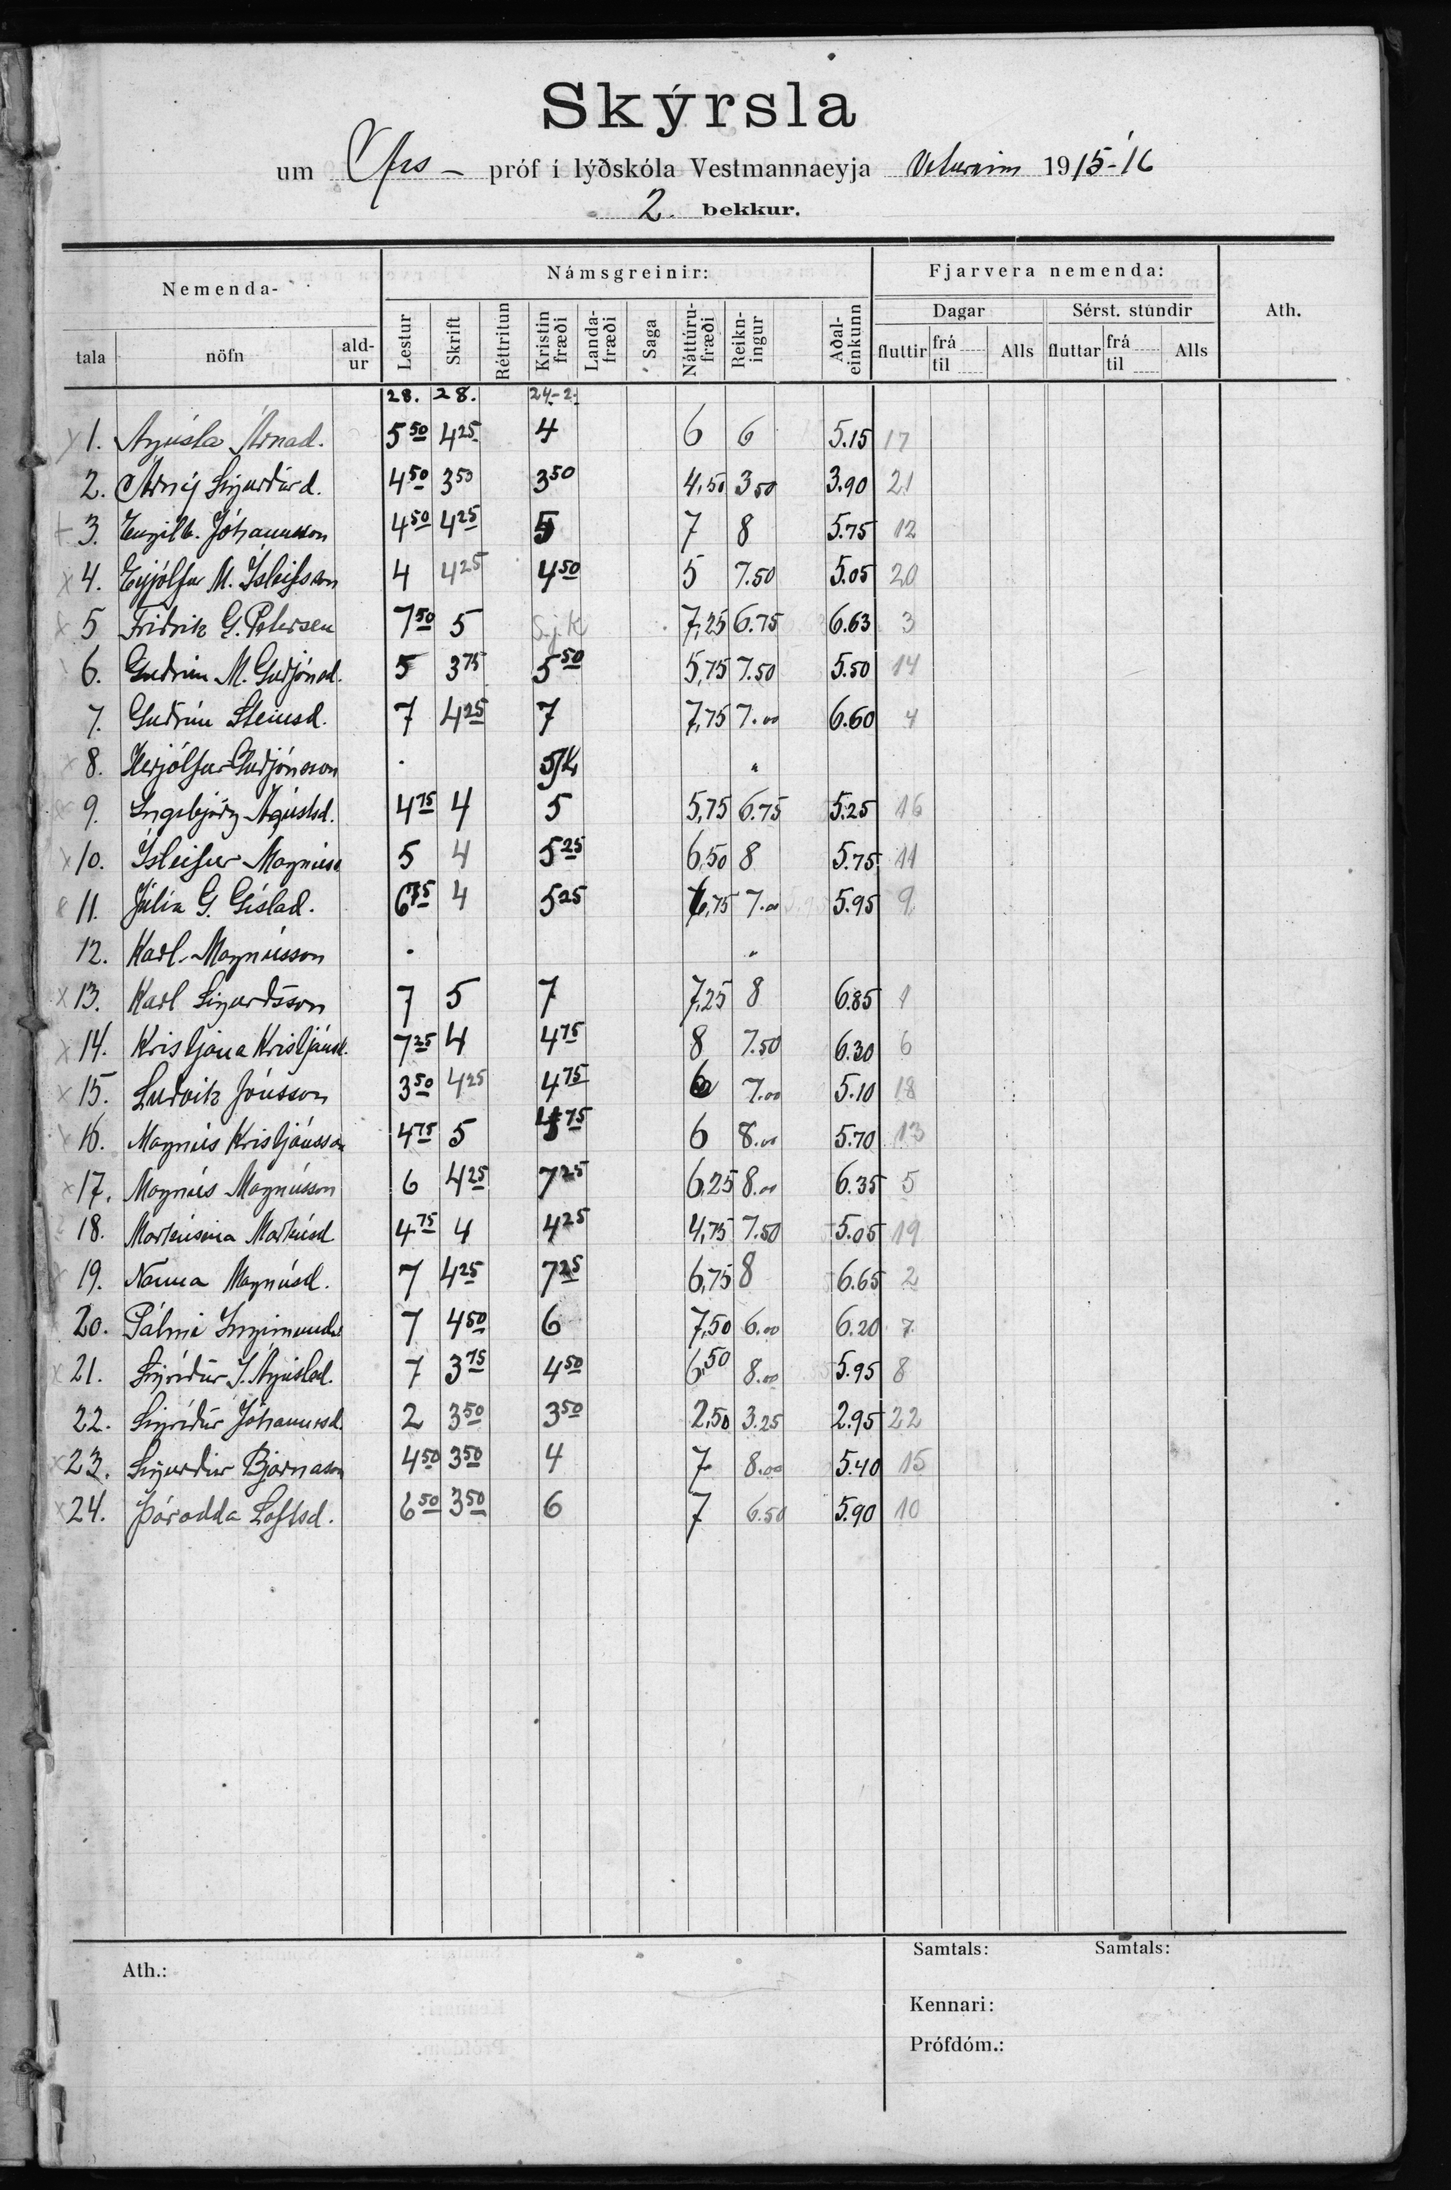 Skýrsla
um Árs- próf í lýðskóla Vestmannaeyja Veturinn 1915-'16
2. bekkur.
Nemenda- Námsgreinir: Fjarvera nemenda: Ath.
Dagar Sérst. stundir
tala nöfn aldur Lestur Skrift Réttritun Kristinfræði Landafræði Saga Náttúrufræði Reikningur Aðaleinkunn fluttir frá til Alls fluttar frá til Alls
28. 28. 24-2.
x 1. Ágústa Árnad. 5 50 4 25 4 6 6 5.15 17
2. Árný Sigurðard. 4 50 3 50 3 50 4,50 3 50 3.90 21
+ 3. Engilb. Jóhannsson 4 50 4 25 5 7 8 5.75 12
x 4. Eyjólfur M. Ísleifsson 4 4 25 4 50 5 7.50 5.05 20
x 5 Friðrik G. Petersen 7 50 5 Sjk 7,25 6.75 6.63 3
6. Guðrún M. Guðjónsd. 5 3 75 5 50 5,75 7.50 5.50 14
7. Guðrún Steinsd. 7 4 25 7 7,75 7.00 6.60 4
x 8. Herjólfur Guðjónsson . Sjk "
9. Ingibjörg Ágústsd. 4 75 4 5 5,75 6.75 5.25 16
x 10. Ísleifur Magnúss 5 4 5 25 6,50 8 5.75 11
11. Júlía G. Gíslad. 6 75 4 5 25 6,75 7.00 5.95 9
12. Karl Magnússon . "
x 13. Karl Sigurðsson 7 5 7 7,25 8 6.85 1
x 14. Kristjana Kristjánsd. 7 25 4 4 75 8 7.50 6.30 6
x 15. Luðvík Jónsson 3 50 4 25 4 75 6 7.00 5.10 18
x 16. Magnús Kristjánsson 4 75 5 4 75 6 8.00 5.70 13
x 17. Magnús Magnússon 6 4 25 7 25 6,25 8.00 6.35 5
18. Markúsína Markúsd 4 75 4 4 25 4,75 7.50 5.05 19
x 19. Nanna Magnúsd. 7 4 25 7 25 6,75 8 6.65 2
20. Pálmi Ingimunds 7 4 50 6 7,50 6.00 6.20 7
x 21. Sigríður J. Ágústsd. 7 3 75 4 50 6,50 8.00 5.95 8
22. Sigríður Jóhannsd. 2 3 50 3 50 2,50 3.25 2.95 22
x 23. Sigurður Bjarnason 4 50 3 50 4 7 8.00 5.40 15
x 24. Þórodda Loftsd. 6 50 3 50 6 7 6.50 5.90 10
Ath.: Samtals: Samtals:
Kennari:
Prófdóm.: